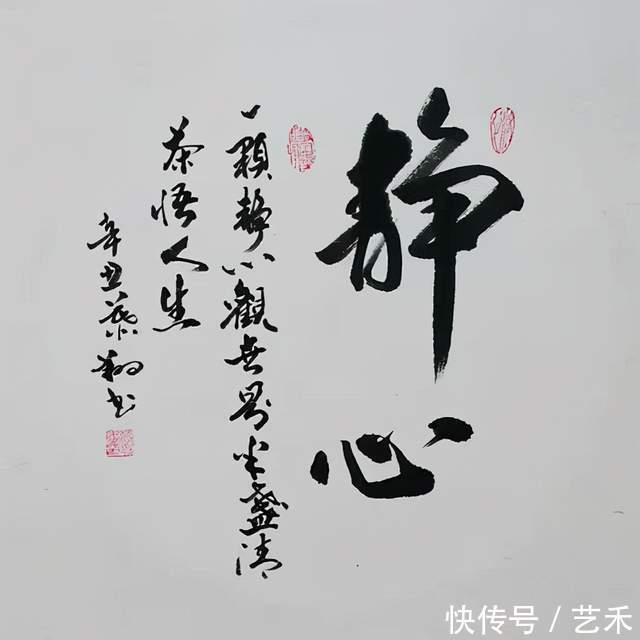 静心
一顆静心觀世界半盞清
茶悟人生
辛丑葉翔书
快传号 / 艺禾